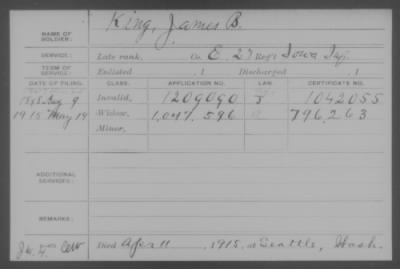 NAME OF SOLDIER: King, James B.
SERVICE: Late rank, Co. E, 27 Reg't Iowa Inf.
TERM OF SERVICE: Enlisted , 1 Discharged , 1
DATE OF FILING. CLASS. APPLICATION NO. LAW. CERTIFICATE NO.
Aug 9 Invalid, 1209090 J 1042055
1915 May 19 Widow, 1,047,596 796,263
Minor,
ADDITIONAL SERVICES:
REMARKS:
Died Apr 11, 1915, at Seattle, Wash.